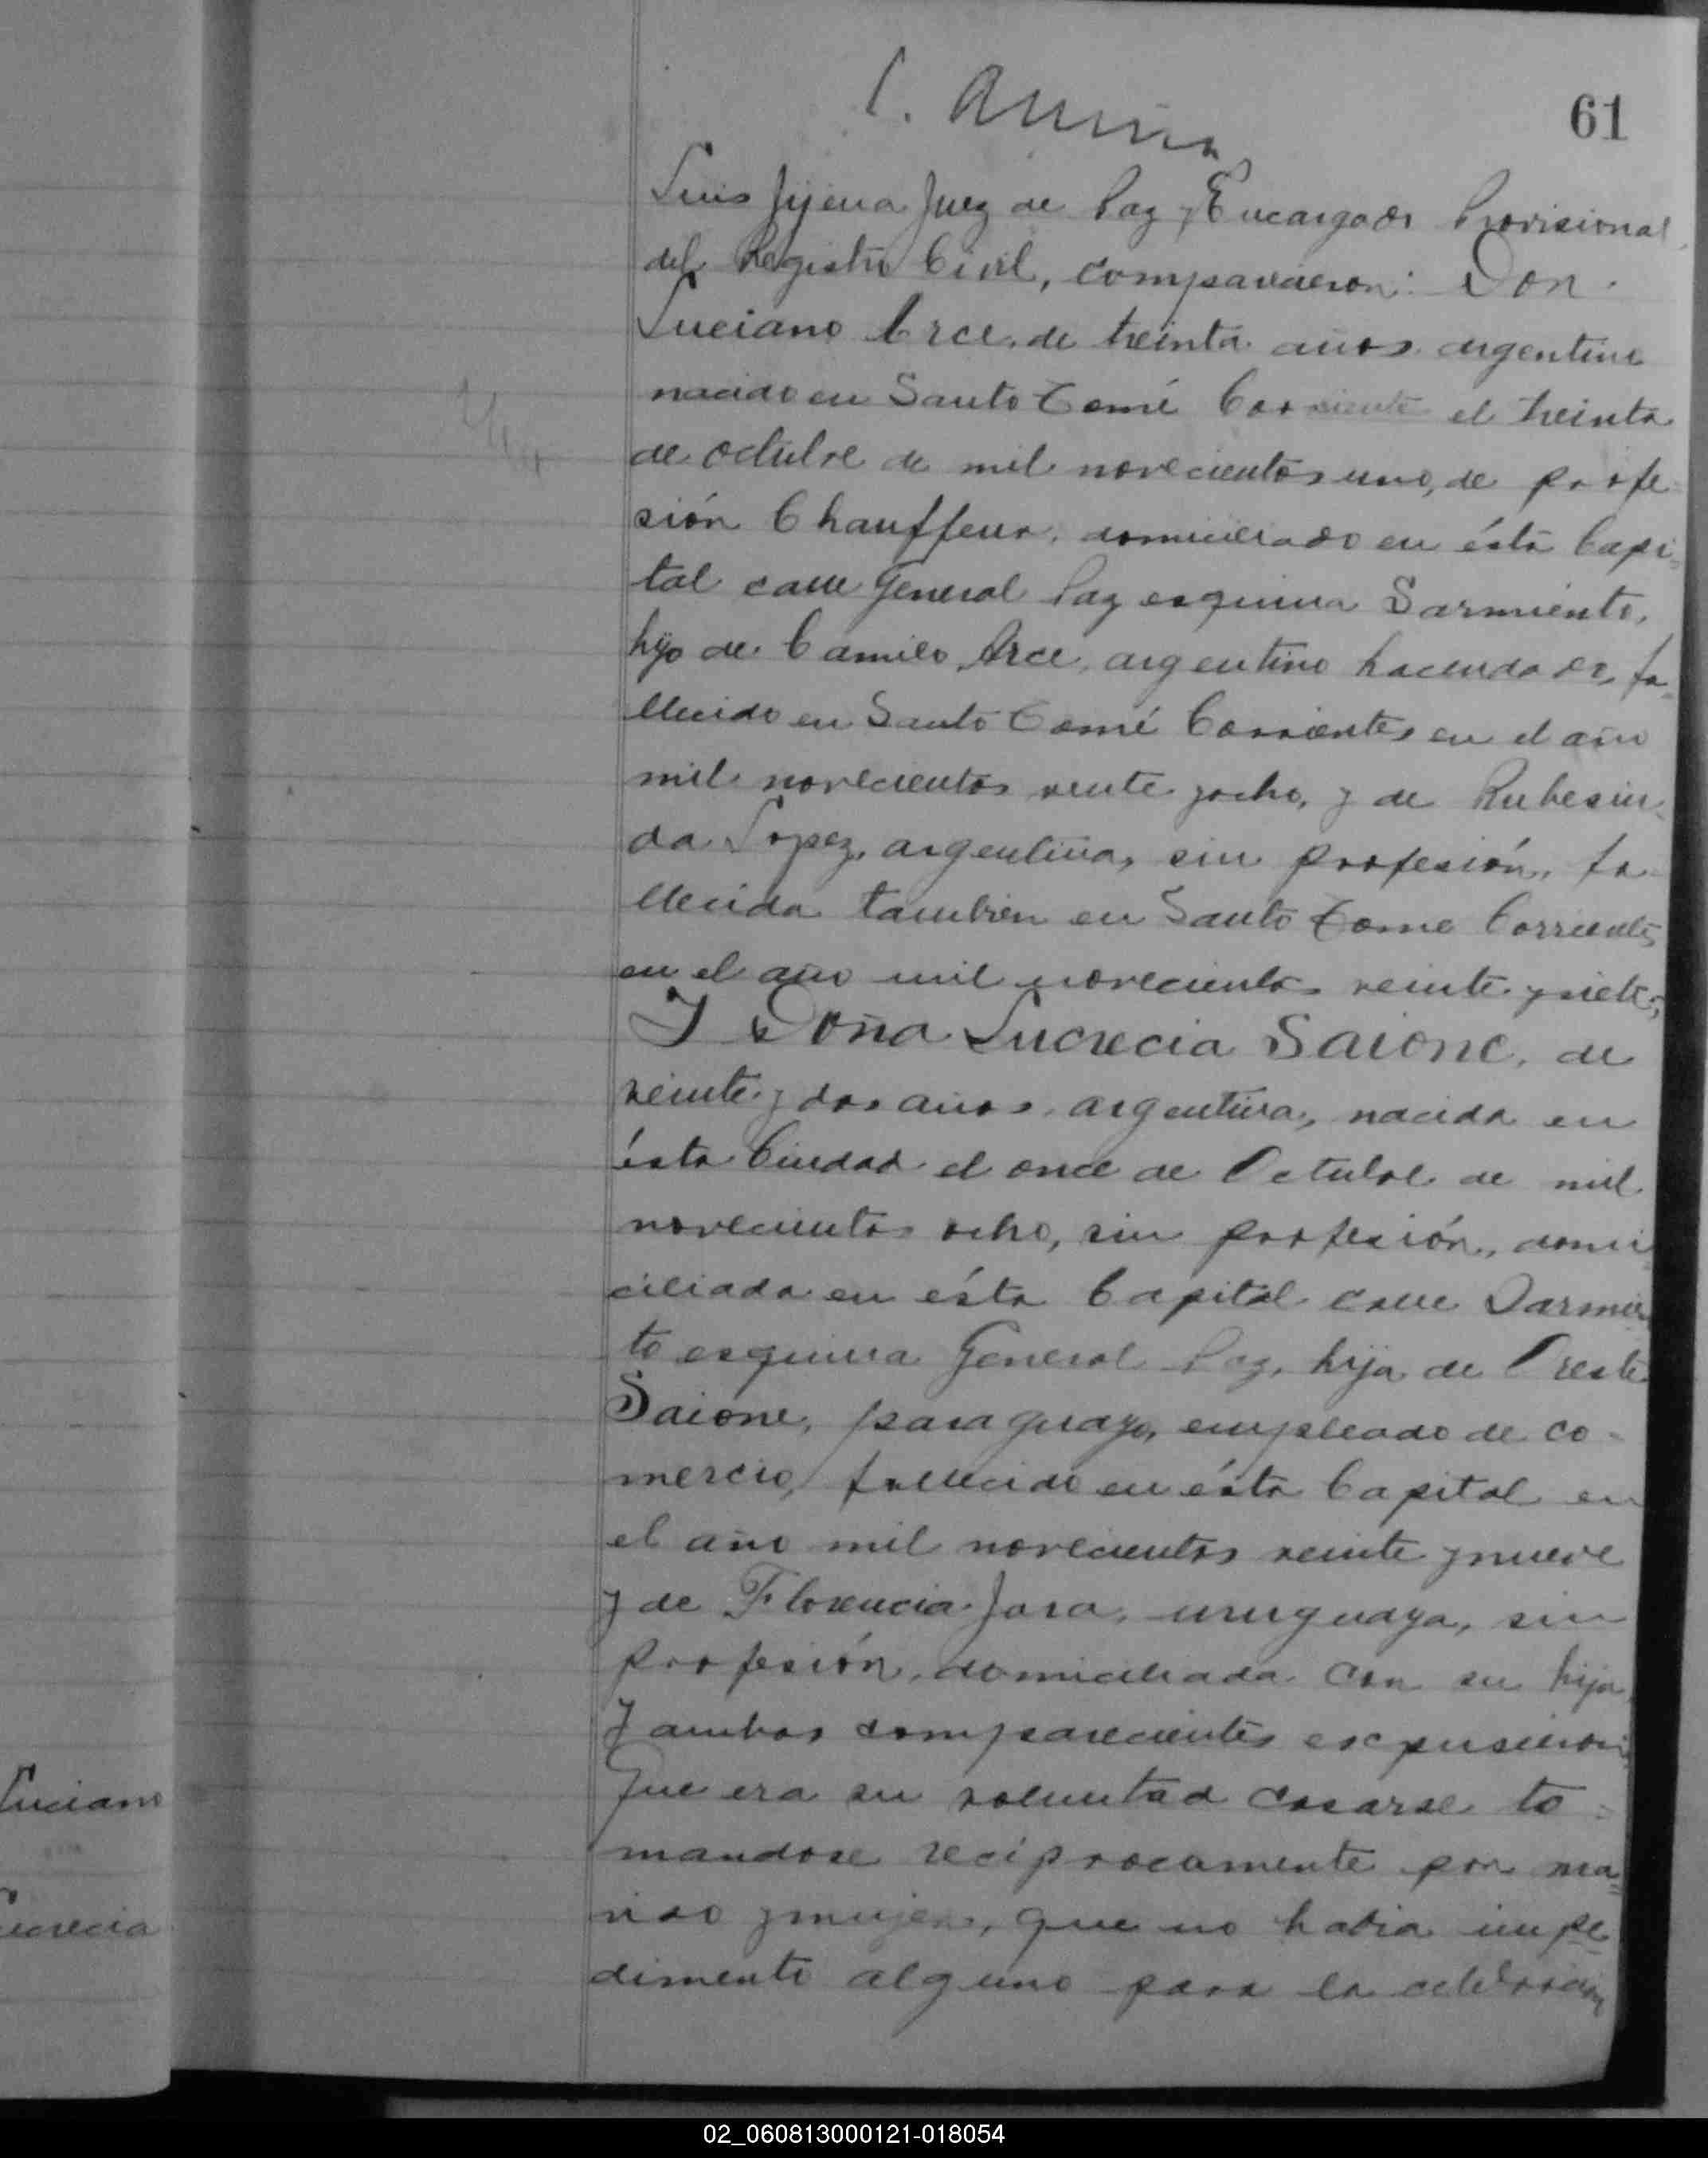 61
Luis Jijena Juez de Paz y Encargado Provisional
del Registro Civil, comparecieron: Don
Luciano Arce, de treinta años argentino
nacido en Santo Tomé Corrientes el treinta
de octubre de mil novecientos uno, de profe-
sión Chauffeur, domiciliado en ésta Capi=
tal calle General Paz esquina Sarmiento,
hijo de Camilo Arce, argentino hacendado, fa-
llecido en Santo Tomé Corrientes en el año
mil novecientos veinte y ocho, y de Rubesin-
da Lopez, argentina, sin profesión, fa-
llecida tambien en Santo Tome Corrientes
en el año mil novecientos veinte y siete;
Y Doña Lucrecia Saione, de
veinte y dos años, argentina, nacida en
ésta Ciudad el once de Octubre de mil
novecientos ocho, sin profesión, domi
ciliada en ésta Capital calle Sarmien
to esquina General Paz, hija de Oreste
Saione, paraguayo, empleado de co-
mercio, fallecido en ésta Capital en
el año mil novecientos veinte y nueve
y de Florencia Jara, uruguaya, sin
profesión, domiciliada con su hija,
Y ambos comparecientes expusieron
Que era su voluntad casarse to=
mandose reciprocamente por ma=
rido y mujer, que no habia impe-
dimento alguno para la celebracion
Luciano
Lucrecia
02_060813000121-018054